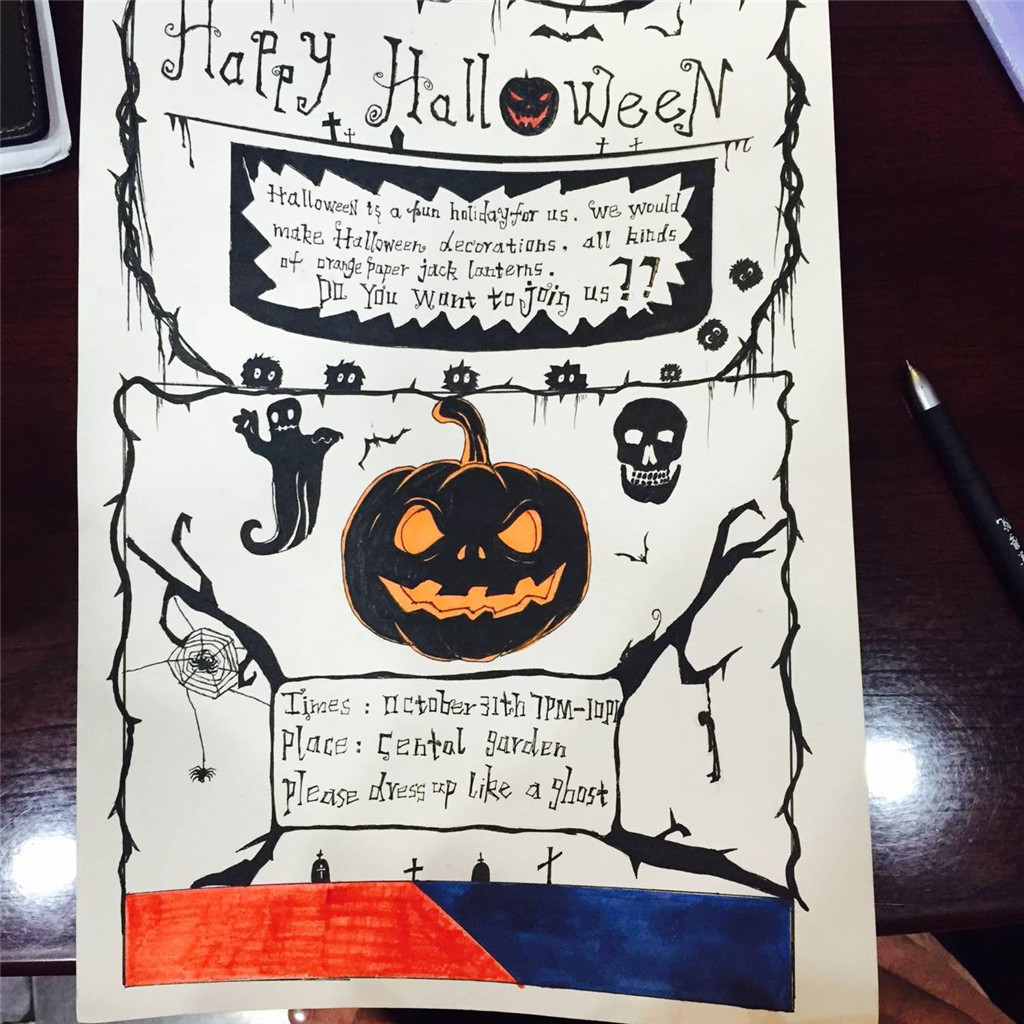 Happy Halloween
Halloween is a fun holiday for us. We would
make Halloween decorations, all kinds
of orange paper jack lanterns.
Do You Want to join us ??
Times : October 31th 7PM-10PM
Place : Cental garden
please dress up like a ghost